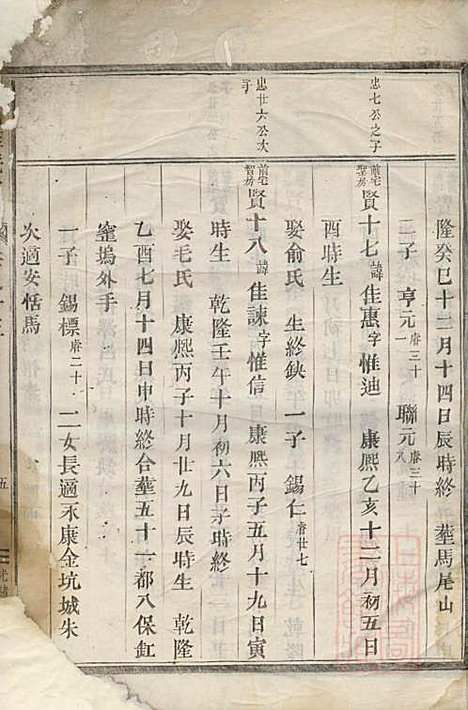 隆癸巳十二月十四日辰時終 葬馬尾山
二子 亨元 睿三十一 聯元 睿三十八
忠七公之子
前宅聖房 賢十七 諱佳惠字惟迪 康熙乙亥十二月初五日
酉時生
娶俞氏 生終鈌 一子錫仁 睿廿七
忠廿六公次子
前宅智房 賢十八 諱佳諫字惟信 康熙丙子五月十九日寅
時生 乾隆壬午十月初六日子時終
娶毛氏 康熙丙子十月廿九日辰時生 乾隆
乙酉七月十四日申時終合葬五十一都八保釭
窰塢外手
一子 錫標 睿二十 二女長適永康金坑城朱
次適安恬馬
五